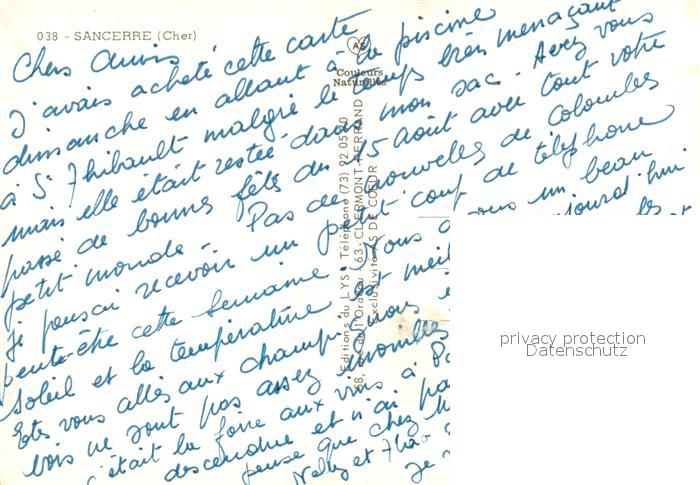 038 - SANCERRE (Cher)
Chers Amis
J'avais acheté cette carte
dimanche en allant à la piscine
à St Thibault malgré le temps très menaçant
mais elle était restée dans mon sac. Avez vous
passé de bonnes fêtes du 15 Août avec tout votre
petit monde - Pas de nouvelles de Colombes
je pensais recevoir un petit coup de téléphone
peut-être cette semaine. Nous avons un beau
soleil et la température est meil aujourd'hui
Etes vous allés aux champignons les
bois ne sont pas assez
c'était la foire aux vins à
descendue et n'ai pa
pense que chez
Nelly et
Je
AS
Couleurs
Naturelles
Editions du LYS - Téléphone (73) 92 05 50
68, rue de l'Oradou - 63-CLERMONT-FERRAND
Exclusivité AS DE COEUR
privacy protection
Datenschutz